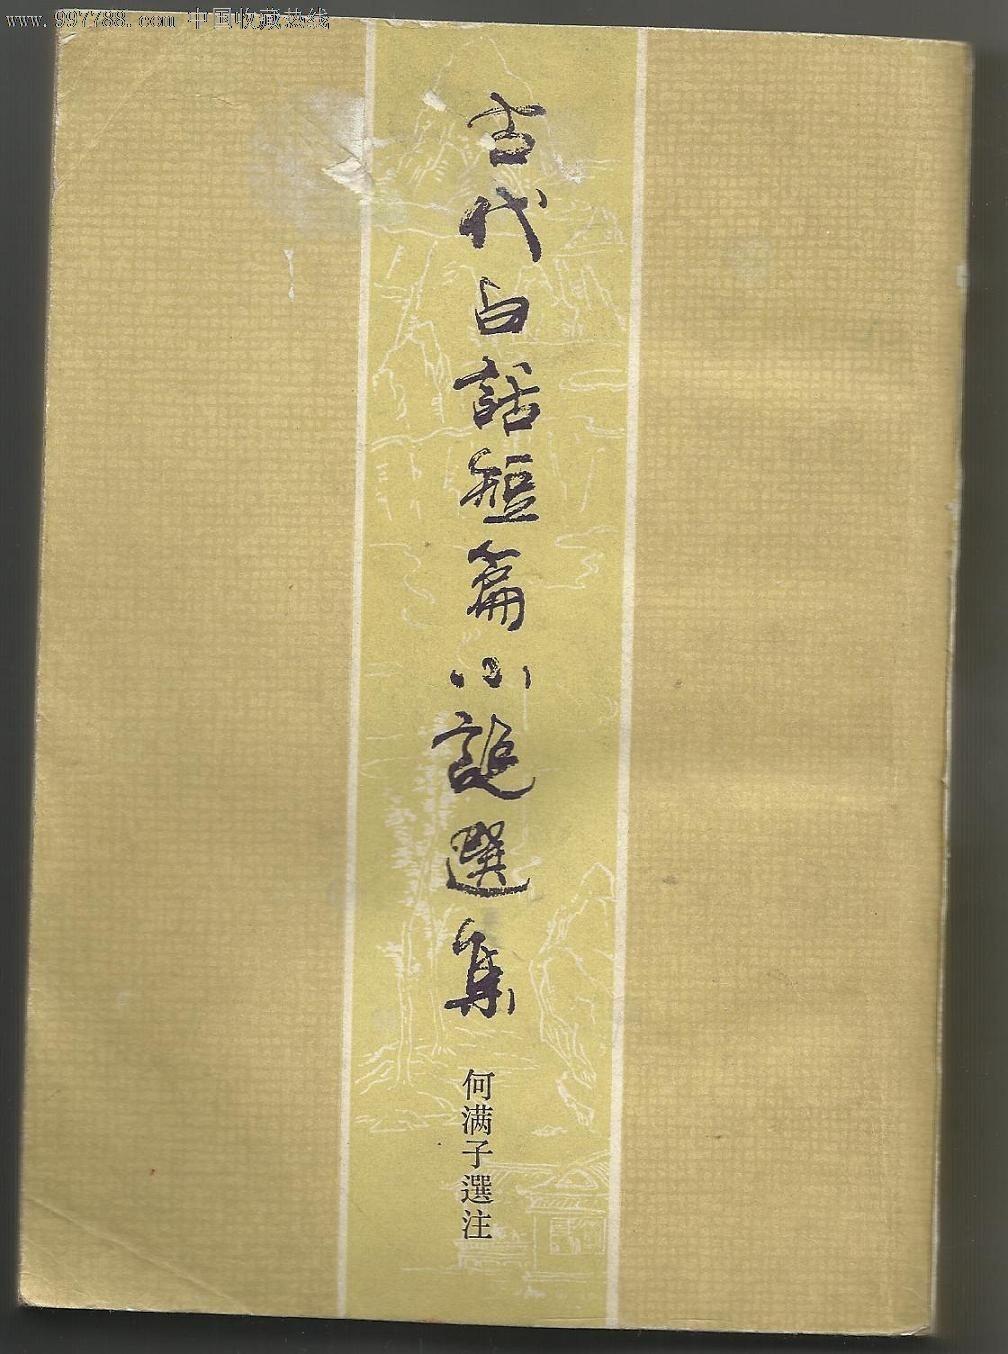 www.997788.com 中国收藏热线
古代白話短篇小說選集
何满子選注